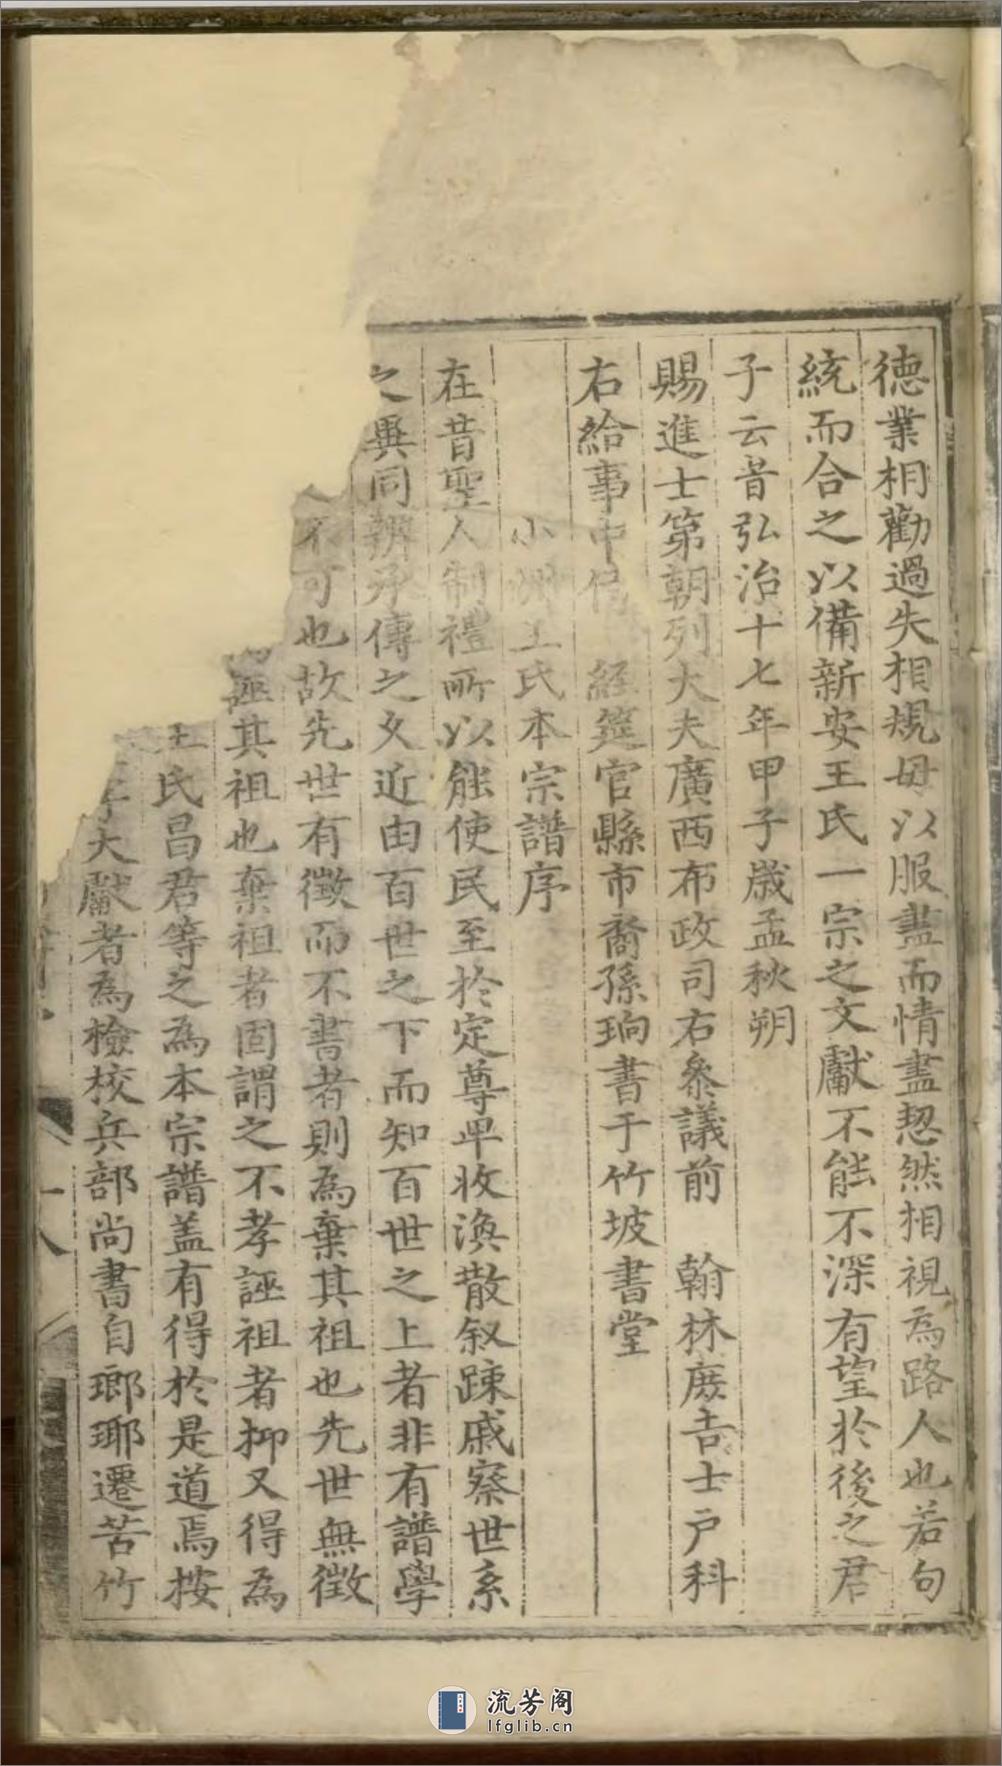 德業相勸過失相規毋以服盡而情盡恝然相視為路人也若句
統而合之以備新安王氏一宗之文獻不能不深有望於後之君
子云旹弘治十七年甲子歲孟秋朔
賜進士第朝列大夫廣西布政司右叅議前 翰林庶吉士户科
右給事中侍 經筵官縣市裔孫珦書于竹坡書堂
小洲王氏本宗譜序
在昔聖人制禮所以能使民至於定尊卑收渙散叙踈戚察世系
之異同辨承傳之久近由百世之下而知百世之上者非有譜學
不可也故先世有徵而不書者則為棄其祖也先世無徵
誣其祖也棄祖者固謂之不孝誣祖者抑又得為
王氏昌君等之為本宗譜盖有得於是道焉按
字大獻者為檢校兵部尚書自瑯琊遷苦竹
十八
流芳阁
lfglib.cn